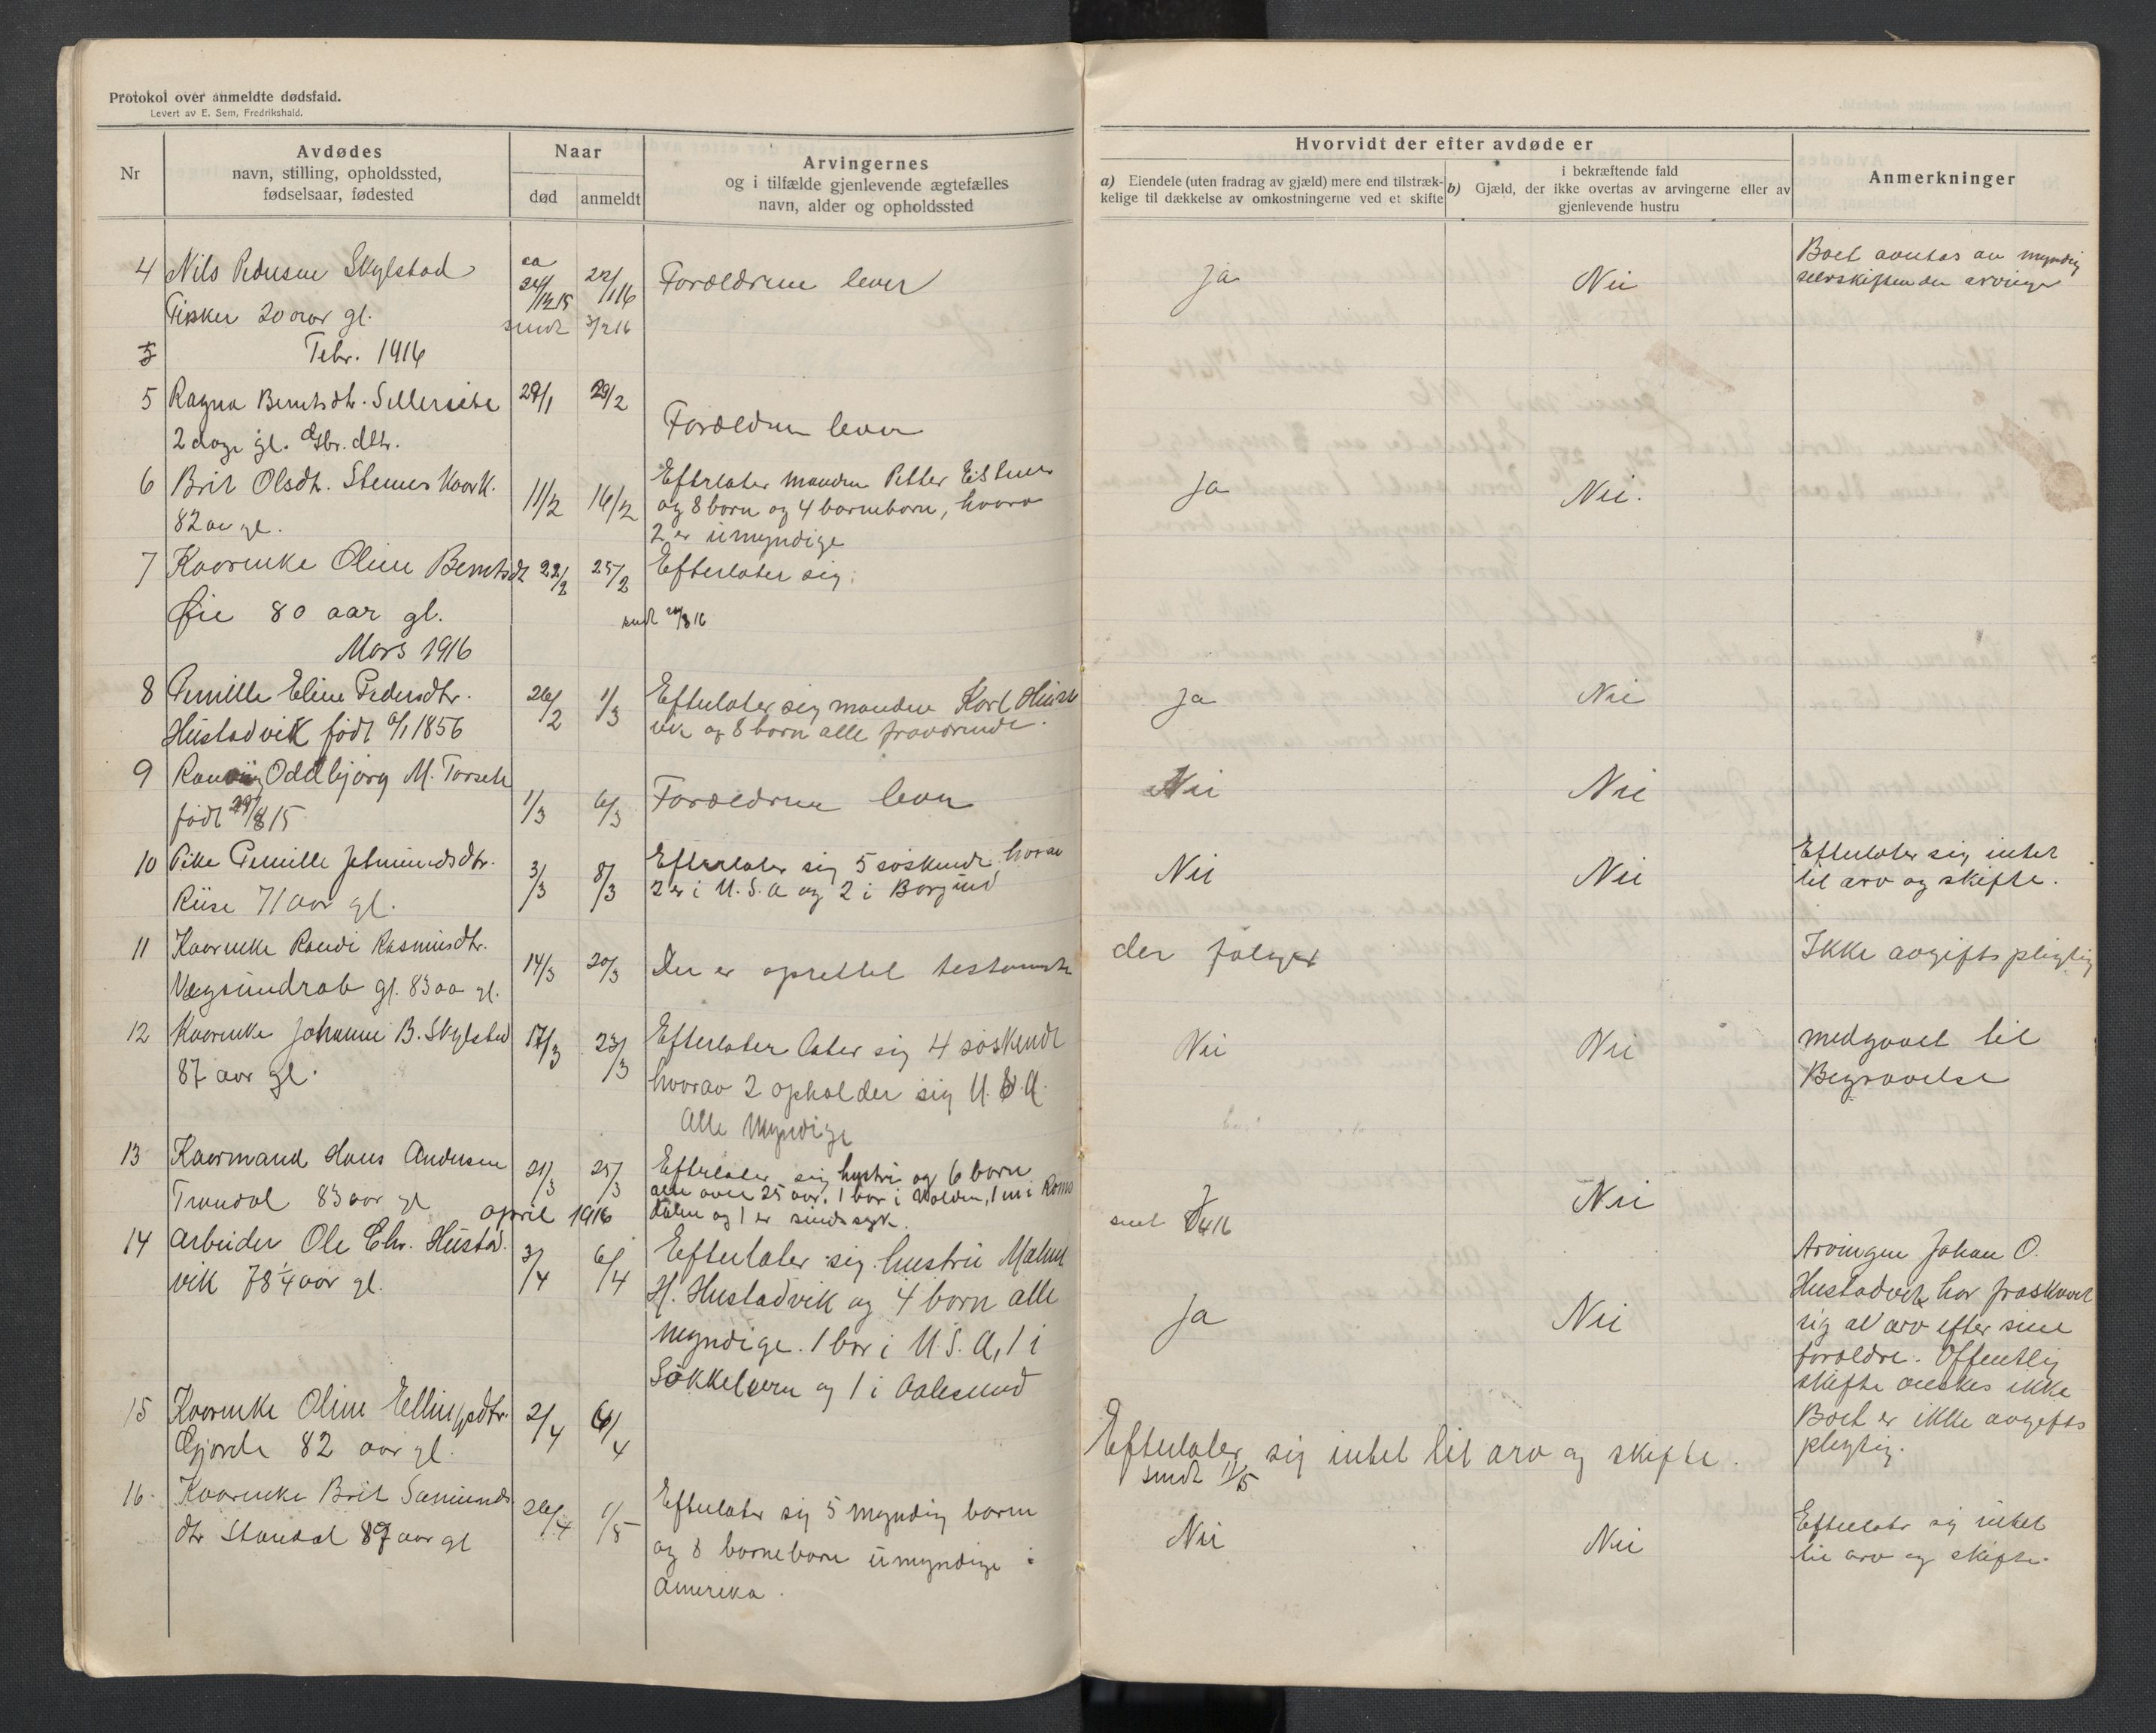 Protokol over anmeldte dødsfald.
Levert av E. Sem, Fredrikshald.
Nr
Avdødes
navn, stilling, opholdssted,
fødselsaar, fødested
Naar
død
anmeldt
Arvingernes
og i tilfælde gjenlevende ægtefælles
navn, alder og opholdssted
Hvorvidt der efter avdøde er
a) Eiendele (uten fradrag av gjæld) mere end tilstræk-
kelige til dækkelse av omkostningerne ved et skifte
i bekræftende fald
b) Gjæld, der ikke overtas av arvingerne eller av
gjenlevende hustru
Anmerkninger
4 Nils Pedersen Skylstad
Fisker 20 aar gl.
22/1 16
Forældrene lever
Ja
Nei
Boet av myndig
selvskiftende arvinger
sendt 3/2 16
Febr. 1916
5 Ragna Berntsdtr.
2 dage gl.
29/2
Forældrene lever
6 Brit Olsdtr.
82 aar gl.
11/2 16/2
Efterlater manden Petter
og 8 born og 4 borneborn, hvorav
2 er umyndige
Ja
Nei.
7 Kaarenke Oline Berntsdt
Øie 80 aar gl.
22/2 25/2
Efterlater sig:
sendt
Mars 1916
8 Pernille Eline Pedersdtr.
Hustadvik født 1856
26/2 1/3
Efterlater sig manden Karl Hustad
vik og 8 born alle fraværende.
Ja
Nei
9 Oddbjørg M.
født 15
1/3 6/3
Forældrene lever
Nei
Nei
10 Pike Pernille Jetmundsdtr.
Riise 71 aar gl.
3/3 8/3
Efterlater sig 5 søskende, hvorav
2 er i U.S.A og 2 i Borgund
Nei
Nei
Efterlater sig intet
til arv og skifte.
11 Kaarenke Randi Rasmusdtr.
gl. 83 aa gl.
14/3 20/3
Der er oprettet testamente
der følger
Ikke avgiftspligtig
12 Kaarenke Johanne B. Skylstad
87 aar gl.
17/3 23/3
Efterlater later sig 4 søskende
hvorav 2 opholder sig U.S.A.
Alle Myndige
Nei
Nei
medgaaet til
Begravelse
13 Kaarmand Hans Andersen
Trandal 83 aar gl
21/3 25/3
Efterlater sig hustru og 6 born
alle over 25 aar. 1 bor i Volden, 1 i Roms
dalen og 1 er sindssyk.
Nei
april 1916
14 Arbeider Ole Chr. Hustad.
vik 78 1/4 aar gl.
3/4 6/4
Efterlater sig hustru
H. Hustadvik og 4 born alle
Myndige. 1 bor i U.S.A, 1 i
Søkkelvern og 1 i Aalesund
Ja
Nei
Arvingen Johan O.
Hustadvik har fraskrevet
sig al arv efter sine
foreldre. Offentlig
skifte ønskes ikke
Boet er ikke avgifts
pligtig.
15 Kaarenke Oline Ellingsdtr.
Gjørde 82 aar gl.
2/4 6/4
Efterlater sig intet til arv og skifte.
sendt 11/5
16 Kaarenke Brit Samunds
dtr Standal 87 aar gl
26/4 1/5
Efterlater sig 5 myndig born
og 8 borneborn umyndige i
Amerika.
Nei
Nei
Efterlater sig intet
til arv og skifte.